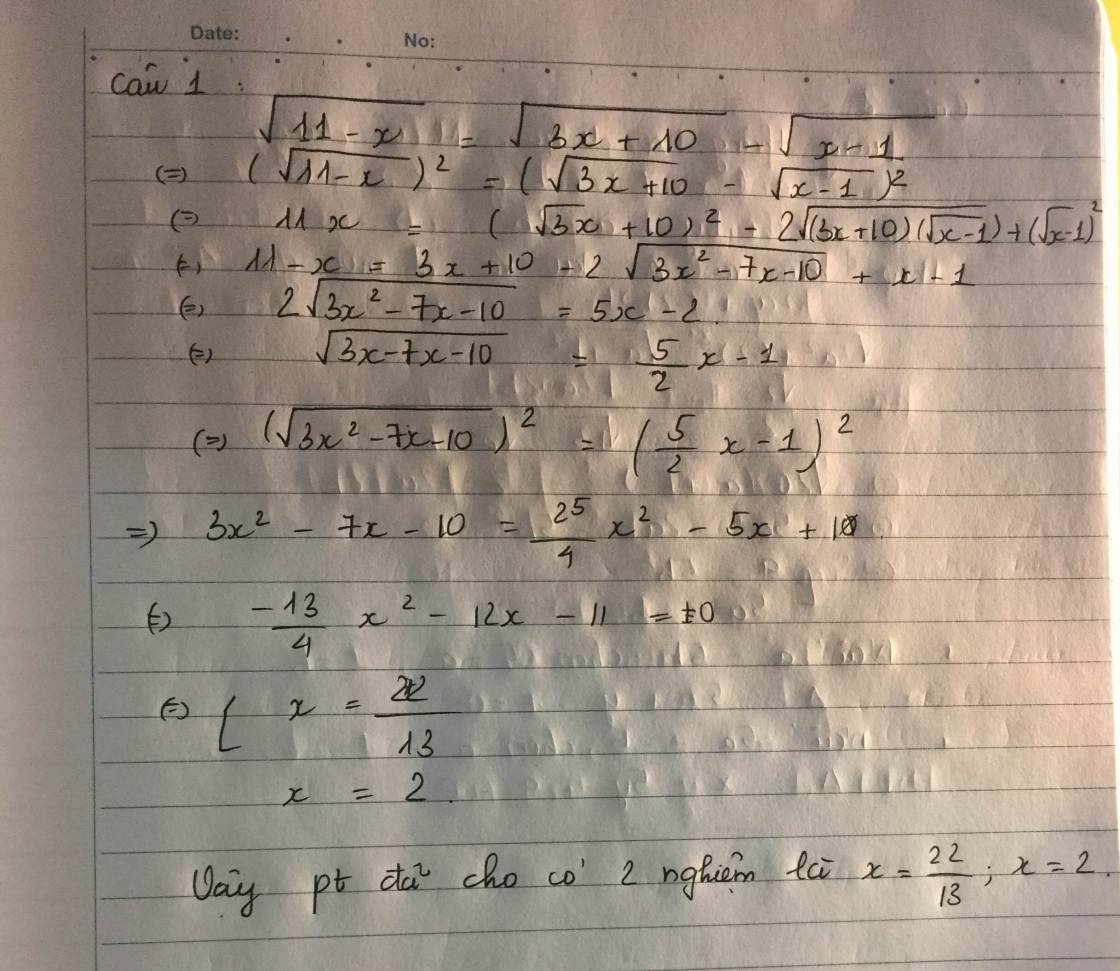 Date: No:
Câu 1 :
√(11 - x) = √(3x + 10) - √(x - 1)
(=) (√(11-x))² = (√(3x+10) - √(x-1))²
(=) 11 x = (√3x + 10)² - 2√((3x+10)(√x-1)) + (√x-1)²
(=) 11-x = 3x +10 - 2 √(3x² - 7x-10) + x - 1
(=) 2√(3x² - 7x - 10) = 5x - 2.
(=) √(3x-7x-10) = 5/2 x - 1
(=) (√(3x² -7x-10))² = (5/2 x - 1)²
=) 3x² - 7x - 10 = 25/4 x² - 5x + 1
(=) -13/4 x² - 12x - 11 = 0
(=) [ x = 22/13
x = 2.
Vậy pt đã cho có 2 nghiệm là x = 22/13 ; x = 2.